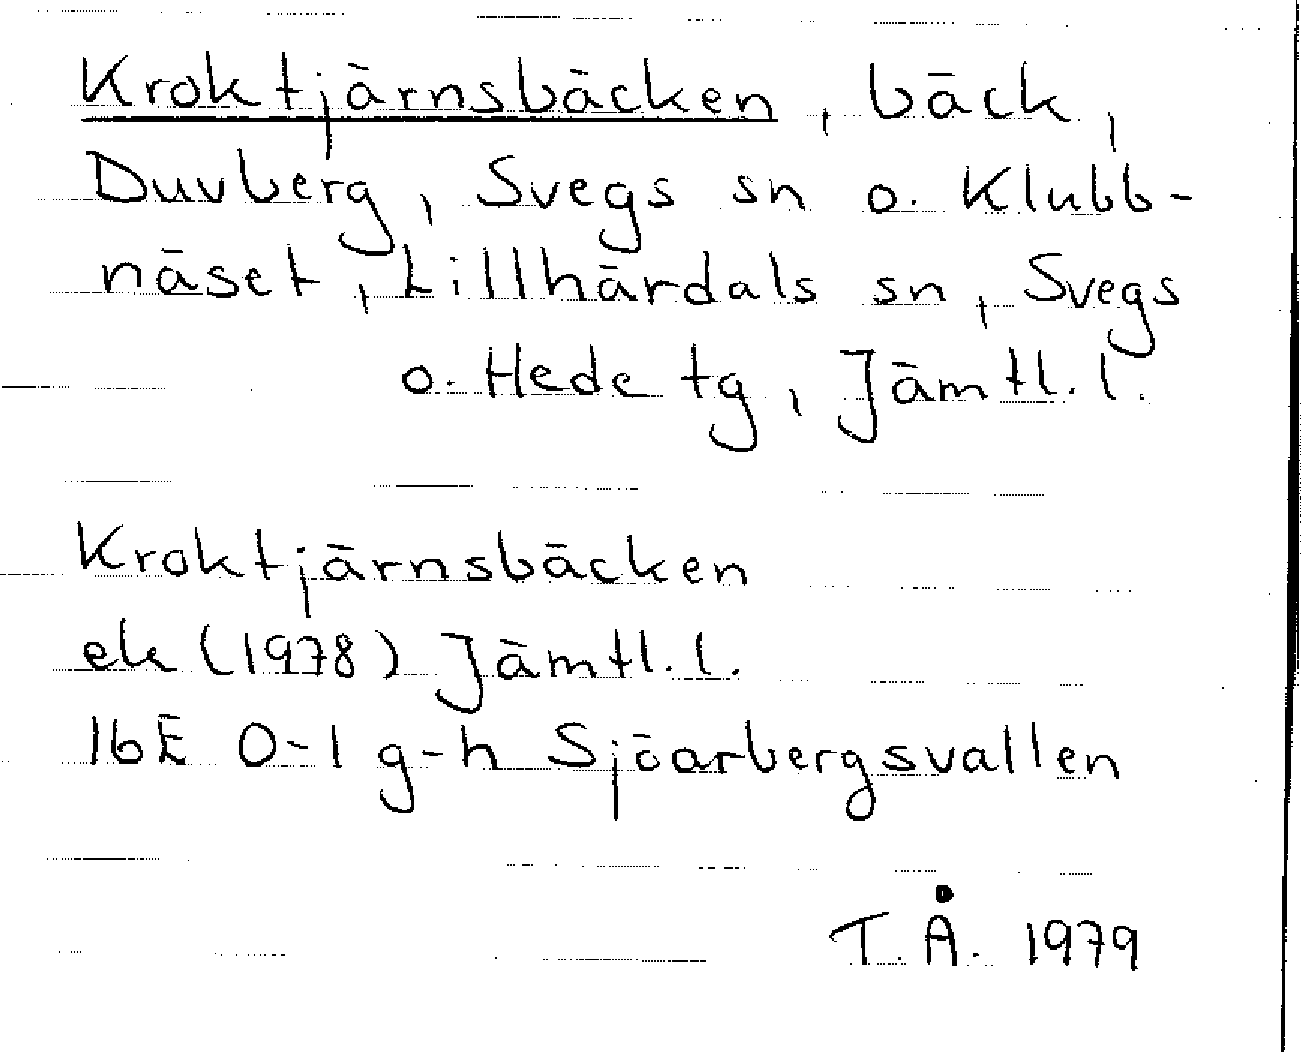 Kroktjärnsbäcken, bäck,
Duvberg, Svegs sn o. Klubb-
näset, Lillhärdals sn, Svegs
o. Hede tg, Jämtl. l.
Kroktjärnsbäcken
ek (1978) Jämtl. l.
16E 0-1 g-h Sjöarbergsvallen
T. Å. 1979